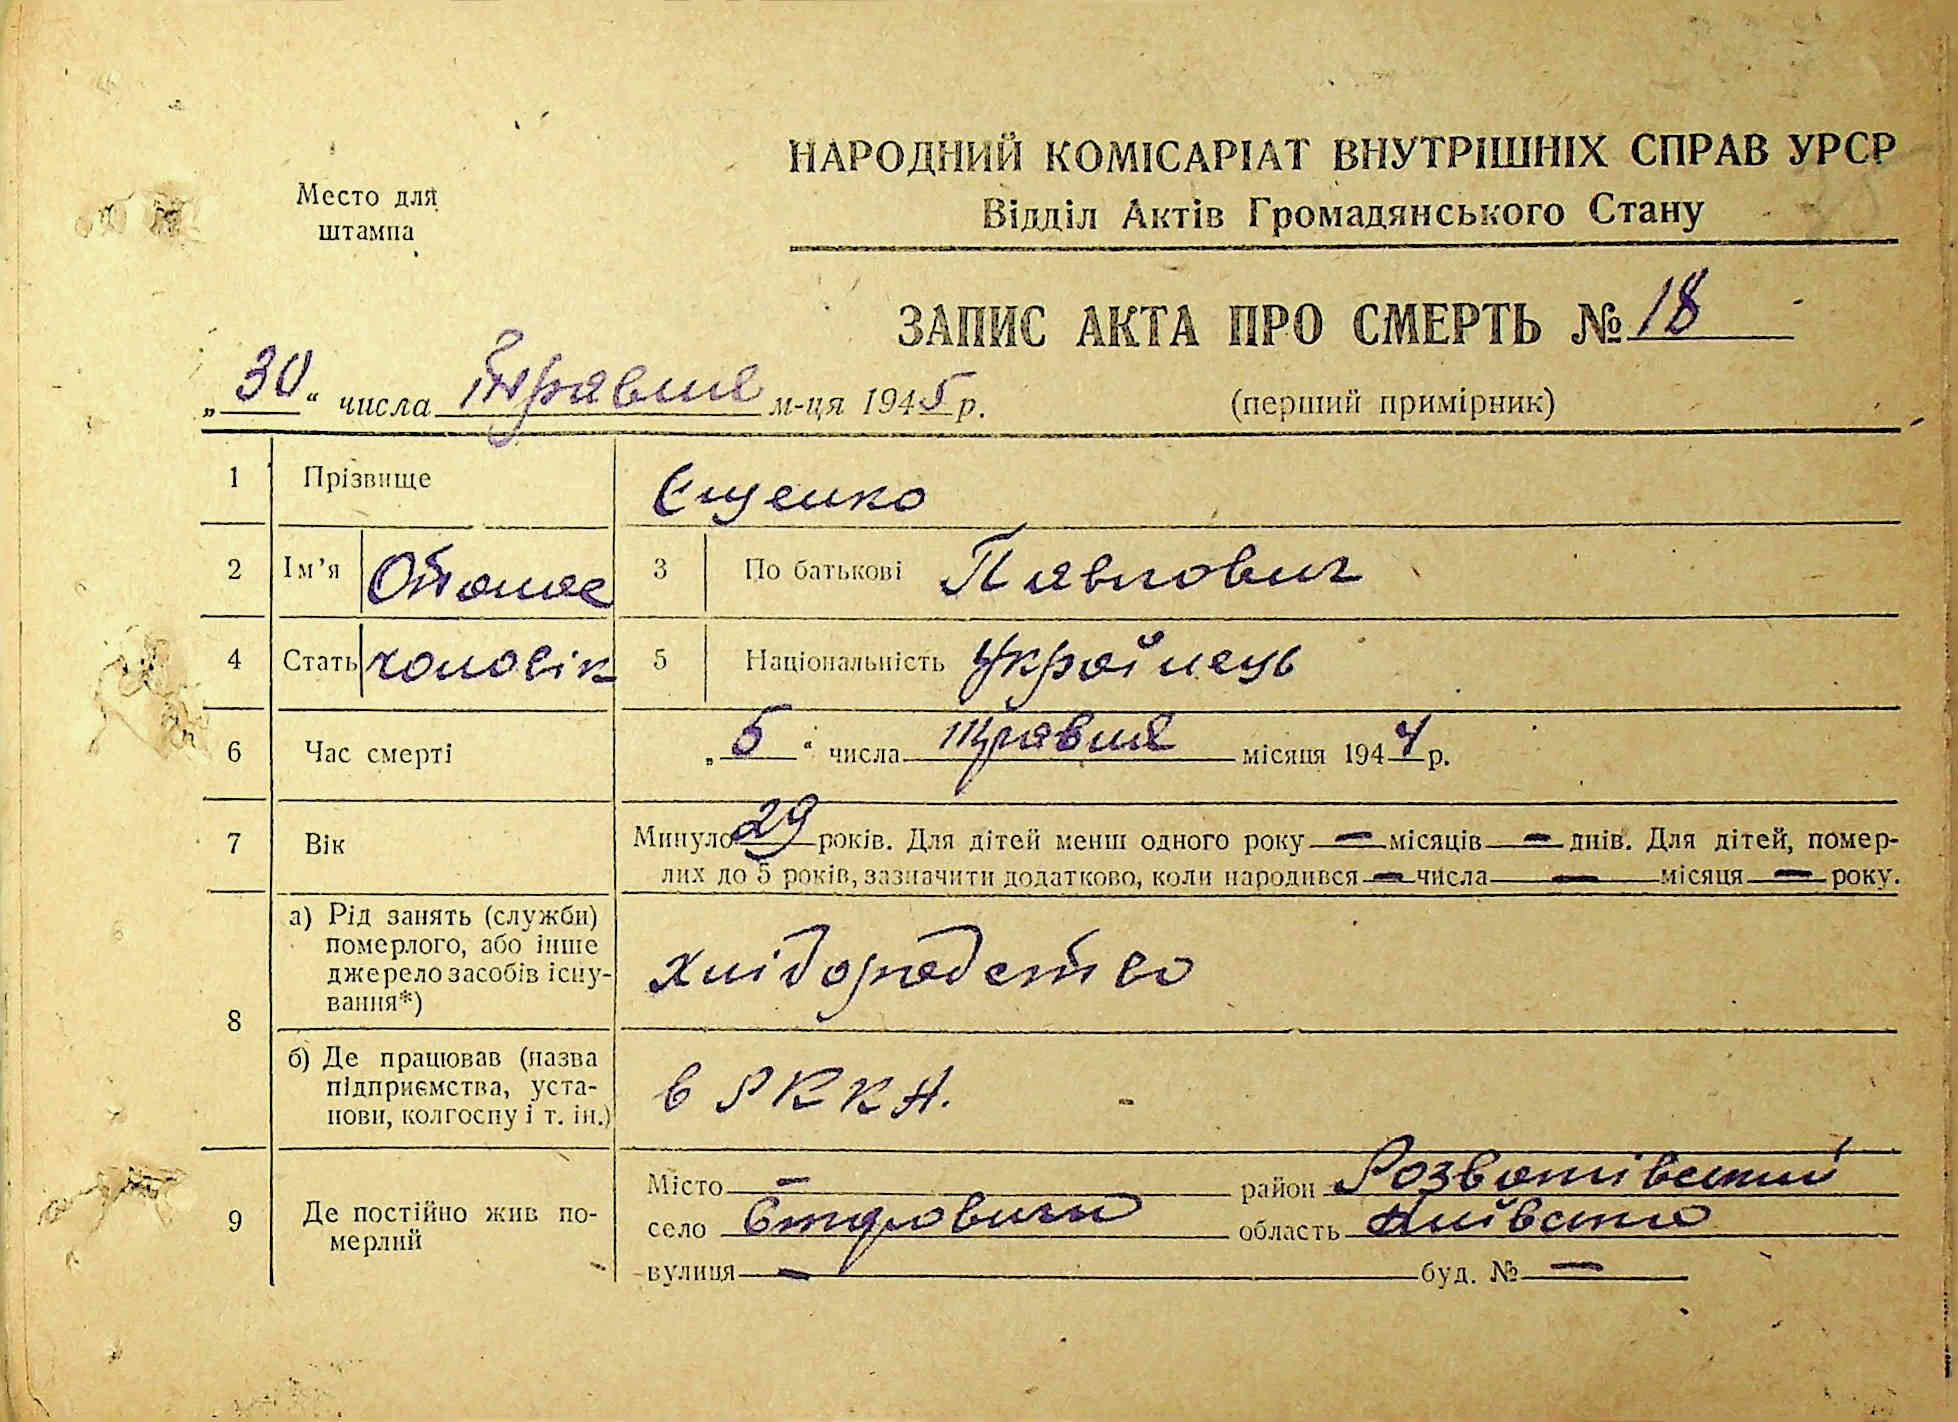 НАРОДНИЙ КОМІСАРІАТ ВНУТРІШНІХ СПРАВ УРСР
Відділ Актів Громадянського Стану
Место для
штампа
ЗАПИС АКТА ПРО СМЕРТЬ № 18
„30“ числа Травня м-ця 1945 р.
(перший примірник)
1 Прізвище Єщенко
2 Ім’я Опанас 3 По батькові Павлович
4 Стать чоловік 5 Національність Українець
6 Час смерті „5“ числа травня місяця 1944 р.
7 Вік Минуло 29 років. Для дітей менш одного року — місяців — днів. Для дітей, помер-
лих до 5 років, зазначити додатково, коли народився — числа — місяця — року.
8 а) Рід занять (служби)
померлого, або інше
джерело засобів існу-
вання*)
хліборобство
б) Де працював (назва
підприємства, уста-
нови, колгоспу і т. ін.)
в РККА.
9 Де постійно жив по-
мерлий
Місто — район Розважівський
село область Київська
вулиця — буд. № —